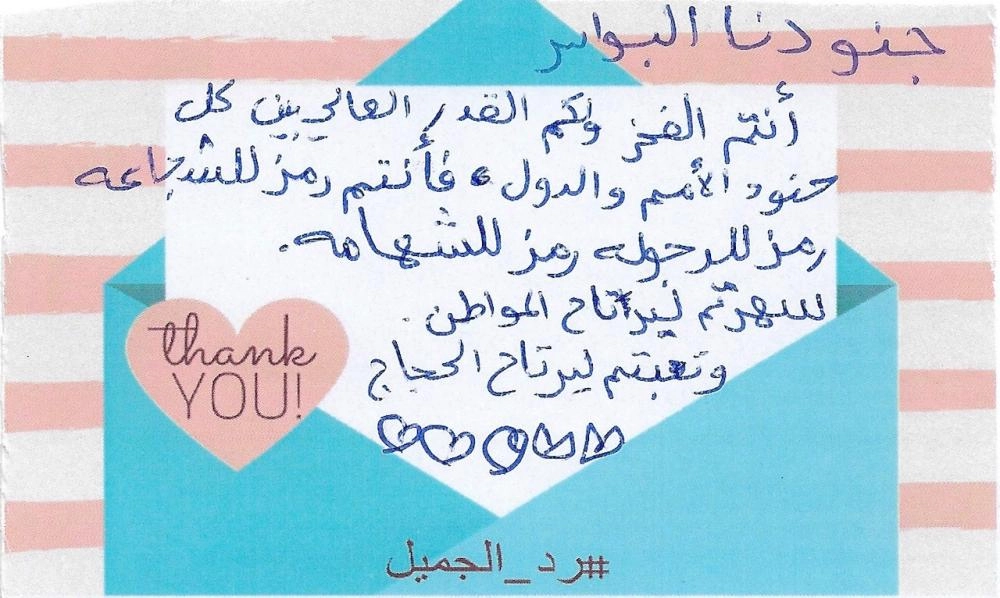 جنودنا البواسر
أنتم الفخر ولكم القدر العالي بين كل
جنود الأمم والدول، فأنتم رمز للشجاعه
رمز للرجوله رمز للشهامه.
سهرتم ليرتاح المواطن.
وتعبتم ليرتاح الحجاج
thank
YOU!
#رد_الجميل